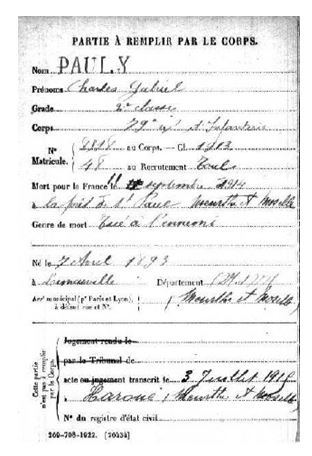 PARTIE À REMPLIR PAR LE CORPS.
Nom PAULY
Prénoms Charles Gabriel
Grade 2e classe
Corps 79e d'Infanterie
N° Matricule. au Corps. — Cl. 1913
48 au Recrutement Toul
Mort pour la France le 11 septembre 1914
à Meurthe et Moselle
Genre de mort Tué à l'ennemi
Né le 7 Avril 1893
à Département
Arr municipal (p Paris et Lyon), à défaut rue et N°. Meurthe et Moselle
Cette partie n'est pas à remplir par le Corps.
Jugement rendu le
par le Tribunal de
acte ou jugement transcrit le 3 Juillet
à Haroué, Meurthe et Moselle
N° du registre d'état civil
269-708-1922. [26434]